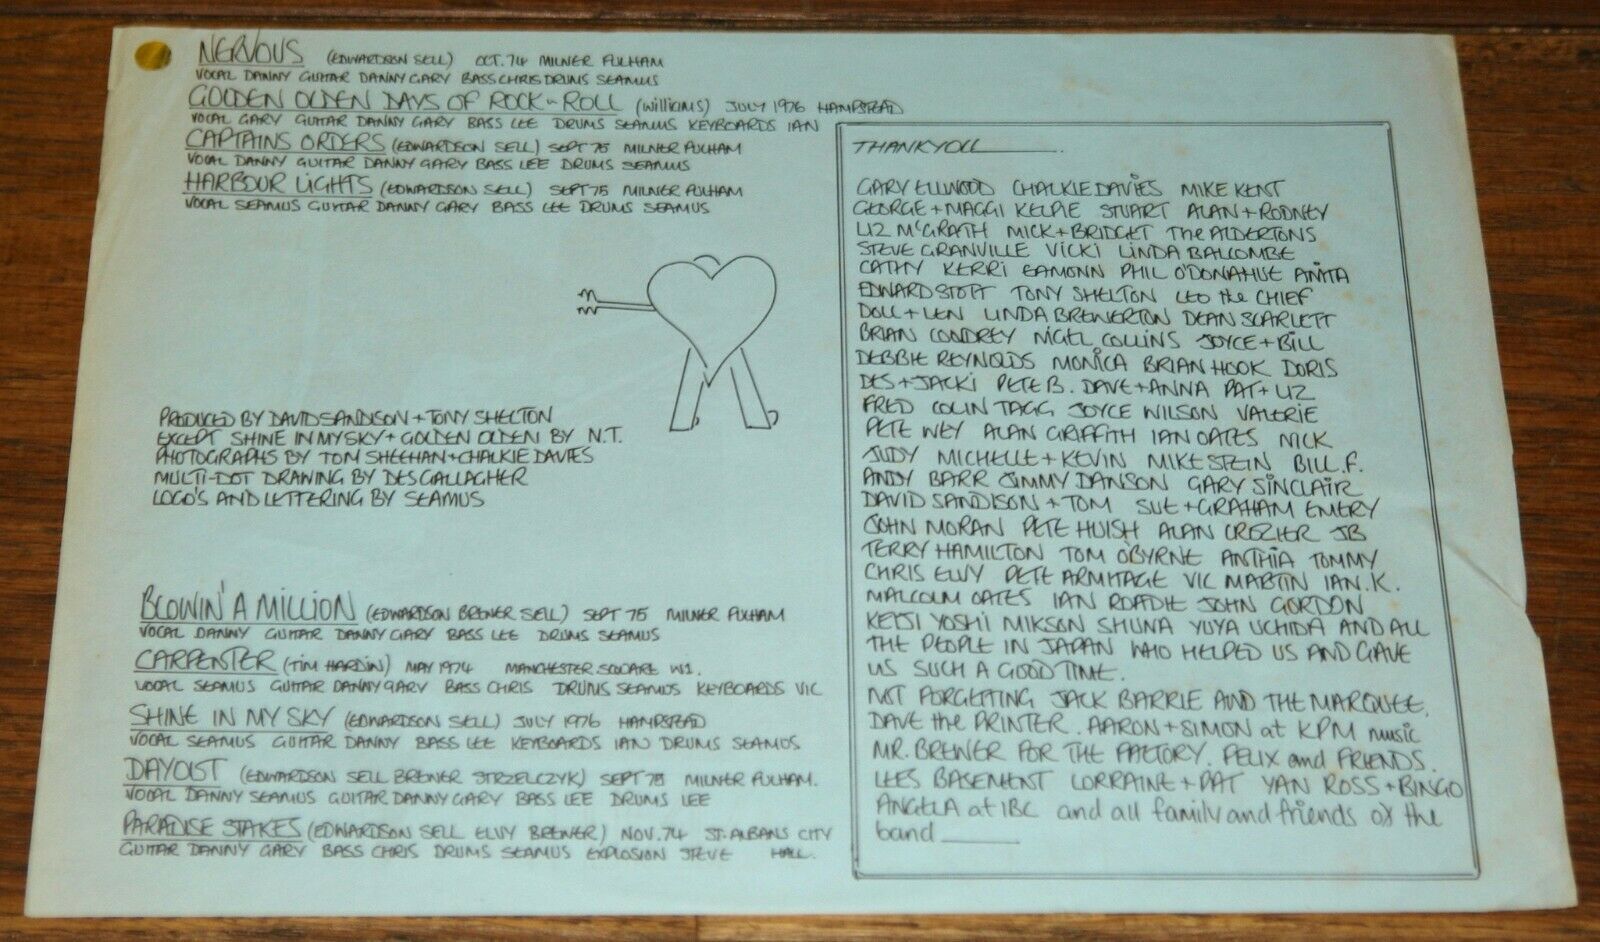 NERVOUS (EDWARDSON SELL) OCT. 74 MILNER FULHAM
VOCAL DANNY GUITAR DANNY GARY BASS CHRIS DRUMS SEAMUS
GOLDEN OLDEN DAYS OF ROCK n ROLL (Williams) JULY 1976 HAMPSTEAD
VOCAL GARY GUITAR DANNY GARY BASS LEE DRUMS SEAMUS KEYBOARDS IAN
CAPTAINS ORDERS (EDWARDSON SELL) SEPT 75 MILNER FULHAM
VOCAL DANNY GUITAR DANNY GARY BASS LEE DRUMS SEAMUS
HARBOUR LIGHTS (EDWARDSON SELL) SEPT 75 MILNER FULHAM
VOCAL SEAMUS GUITAR DANNY GARY BASS LEE DRUMS SEAMUS
PRODUCED BY DAVID SANDISON + TONY SHELTON
EXCEPT SHINE IN MY SKY + GOLDEN OLDEN BY N.T.
PHOTOGRAPHS BY TOM SHEEHAN + CHALKIE DAVIES
MULTI-DOT DRAWING BY DES GALLAGHER
LOGO'S AND LETTERING BY SEAMUS
BLOWIN' A MILLION (EDWARDSON BREWER SELL) SEPT 75 MILNER FULHAM
VOCAL DANNY GUITAR DANNY GARY BASS LEE DRUMS SEAMUS
CARPENTER (TIM HARDIN) MAY 1974 MANCHESTER SQUARE W1.
VOCAL SEAMUS GUITAR DANNY GARY BASS CHRIS DRUMS SEAMUS KEYBOARDS VIC
SHINE IN MY SKY (EDWARDSON SELL) JULY 1976 HAMPSTEAD
VOCAL SEAMUS GUITAR DANNY BASS LEE KEYBOARDS IAN DRUMS SEAMUS
DAYOLT (EDWARDSON SELL BREWER STRZELCZYK) SEPT 75 MILNER FULHAM.
VOCAL DANNY SEAMUS GUITAR DANNY GARY BASS LEE DRUMS LEE
PARADISE STAKES (EDWARDSON SELL ELVY BREWER) NOV. 74 ST. ALBANS CITY
GUITAR DANNY GARY BASS CHRIS DRUMS SEAMUS EXPLOSION STEVE HALL.
THANKYOU
GARY ELLWOOD CHALKIE DAVIES MIKE KENT
GEORGE + MAGGI KELPIE STUART ALAN + RODNEY
LIZ McGRATH MICK + BRIDGET The ALDERTONS
STEVE GRANVILLE VICKI LINDA BALCOMBE
CATHY KERRI EAMONN PHIL O'DONAHUE ANITA
EDWARD STOTT TONY SHELTON LEO the CHIEF
DOLL + LEN LINDA BREWERTON DEAN SCARLETT
BRIAN CONDREY NIGEL COLLINS JOYCE + BILL
DEBBIE REYNOLDS MONICA BRIAN HOOK DORIS
DES + JACKI PETE B. DAVE + ANNA PAT + LIZ
FRED COLIN TAGG JOYCE WILSON VALERIE
PETE WEY ALAN GRIFFITH IAN OATES NICK
JUDY MICHELLE + KEVIN MIKE STEIN BILL.F.
ANDY BARR JIMMY DANSON GARY SINCLAIR
DAVID SANDISON + TOM SUE + GRAHAM EMERY
JOHN MORAN PETE HUISH ALAN CROZIER JB
TERRY HAMILTON TOM O'BYRNE ANTHIA TOMMY
CHRIS ELVY PETE ARMITAGE VIC MARTIN IAN.K.
MALCOLM OATES IAN ROADIE JOHN GORDON
KEISI YOSHI MIKSON SHUNA YUYA UCHIDA AND ALL
THE PEOPLE IN JAPAN WHO HELPED US AND GAVE
US SUCH A GOOD TIME.
NOT FORGETTING JACK BARRIE AND THE MARQUEE.
DAVE the PRINTER. AARON + SIMON at KPM music
MR. BREWER FOR THE FACTORY. FELIX and FRIENDS.
LEES BASEMENT LORRAINE + PAT YAN ROSS + BINGO
ANGELA at IBC and all family and friends of the
band